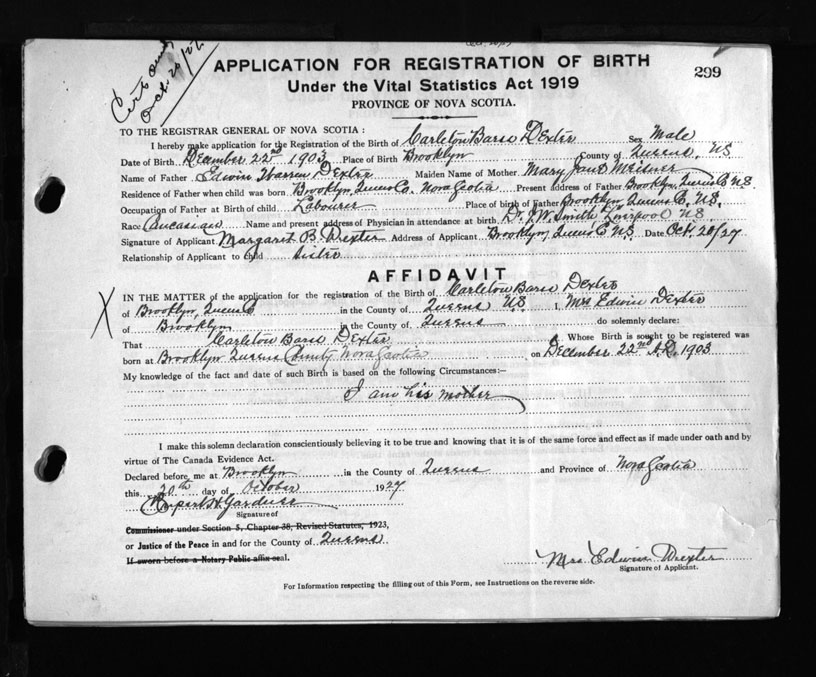 Cert
Oct 26/27
APPLICATION FOR REGISTRATION OF BIRTH
299
Under the Vital Statistics Act 1919
PROVINCE OF NOVA SCOTIA.
TO THE REGISTRAR GENERAL OF NOVA SCOTIA:
I hereby make application for the Registration of the Birth of Carleton Barss Dexter Sex Male
Date of Birth December 22nd 1903 Place of Birth Brooklyn County of Queens, NS
Name of Father Edwin Warren Dexter Maiden Name of Mother Mary Jane Meisner
Residence of Father when child was born Brooklyn, Queens Co. Nova Scotia Present address of Father Brooklyn, Queens Co NS
Occupation of Father at Birth of child Labourer Place of birth of Father Brooklyn, Queens Co, NS.
Race Caucasian Name and present address of Physician in attendance at birth Dr. J.W. Smith Liverpool NS
Signature of Applicant Margaret B. Dexter Address of Applicant Brooklyn, Queens Co NS. Date Oct. 20/27
Relationship of Applicant to child sister
AFFIDAVIT
IN THE MATTER of the application for the registration of the Birth of Carleton Barss Dexter
X of Brooklyn, Queens Co in the County of Queens NS I, Mrs Edwin Dexter
of Brooklyn in the County of Queens do solemnly declare:
That Carleton Barss Dexter Whose Birth is sought to be registered was
born at Brooklyn Queens County Nova Scotia on December 22nd A.D. 1903
My knowledge of the fact and date of such Birth is based on the following Circumstances:—
I am his mother
I make this solemn declaration conscientiously believing it to be true and knowing that it is of the same force and effect as if made under oath and by
virtue of The Canada Evidence Act.
Declared before me at Brooklyn in the County of Queens and Province of Nova Scotia
this 20th day of October 1927
Signature of
Commissioner under Section 5, Chapter 38, Revised Statutes, 1923,
or Justice of the Peace in and for the County of Queens
If sworn before a Notary Public affix seal.
Mrs Edwin Dexter
Signature of Applicant.
For Information respecting the filling out of this Form, see Instructions on the reverse side.